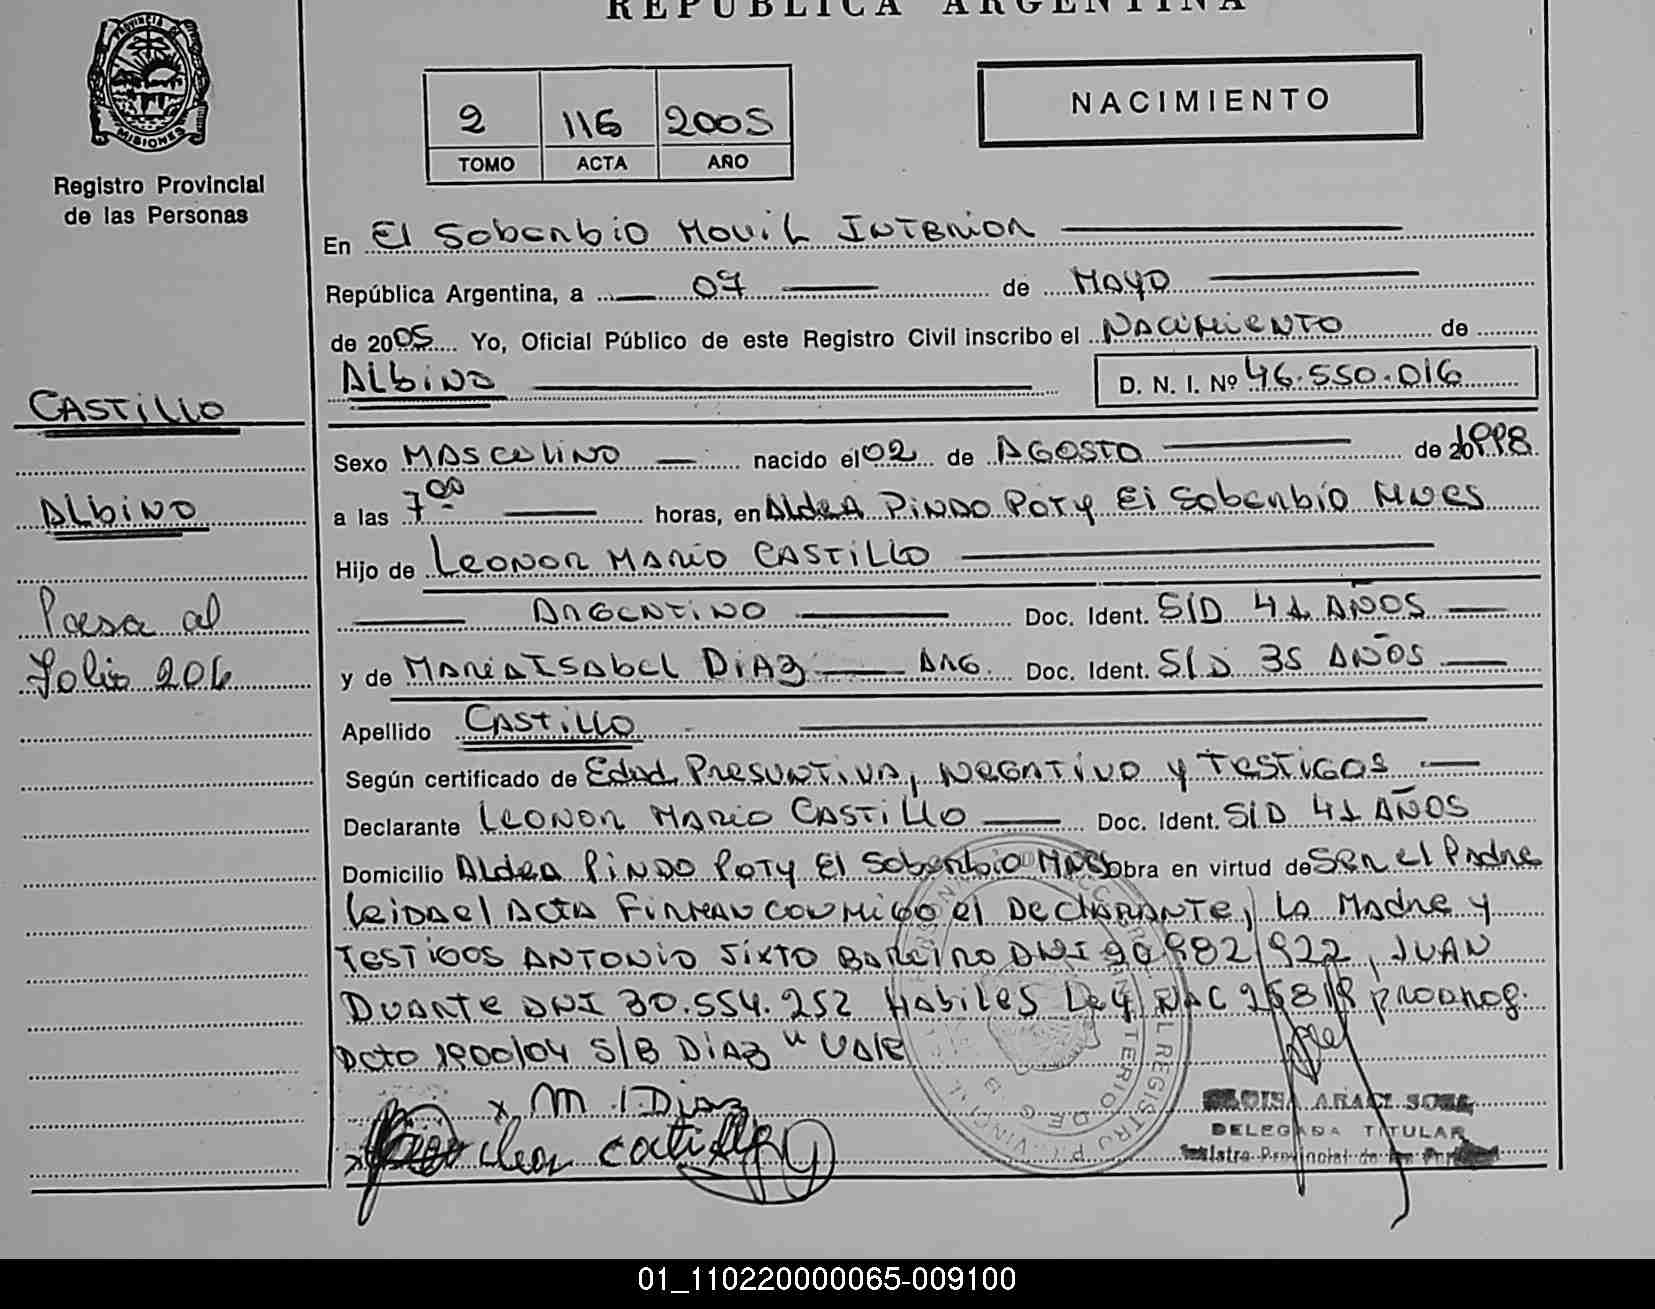 REPUBLICA ARGENTINA
PROVINCIA DE
MISIONES
Registro Provincial
de las Personas
2 116 2005
TOMO ACTA AÑO
NACIMIENTO
En El Soberbio Movil Interior
República Argentina, a 07 de Mayo
de 2005 Yo, Oficial Público de este Registro Civil inscribo el Nacimiento de
Albino D. N. I. Nº 46.550.016
CASTILLO
Albino
Pasa al
Folio 206
Sexo Masculino nacido el 02 de Agosto de 1998
a las 7 00 horas, en Aldea Pindo Poty El Soberbio Mnes
Hijo de Leonor Mario CASTILLO
Argentino Doc. Ident. S/D 41 AÑOS
y de Maria Isabel Diaz Arg. Doc. Ident. S/D 35 AÑOS
Apellido CASTILLO
Según certificado de Edad Presuntiva, Negativo y Testigos
Declarante Leonor Mario Castillo Doc. Ident. S/D 41 AÑOS
Domicilio Aldea Pindo Poty El Soberbio Mnes Obra en virtud de Ser el Padre
Leida el Acta Firman conmigo el Declarante, La Madre y
Testigos Antonio Sixto Bareiro DNI 90.882.922, Juan
Duarte DNI 30.554.252 Habiles Ley Nac 25819 prorrog.
Dcto 1900/04 S/B Diaz " Vale
x M. I Diaz
ELOISA ARACI SOSA
DELEGADA TITULAR
Registro Provincial de las Personas
01_110220000065-009100